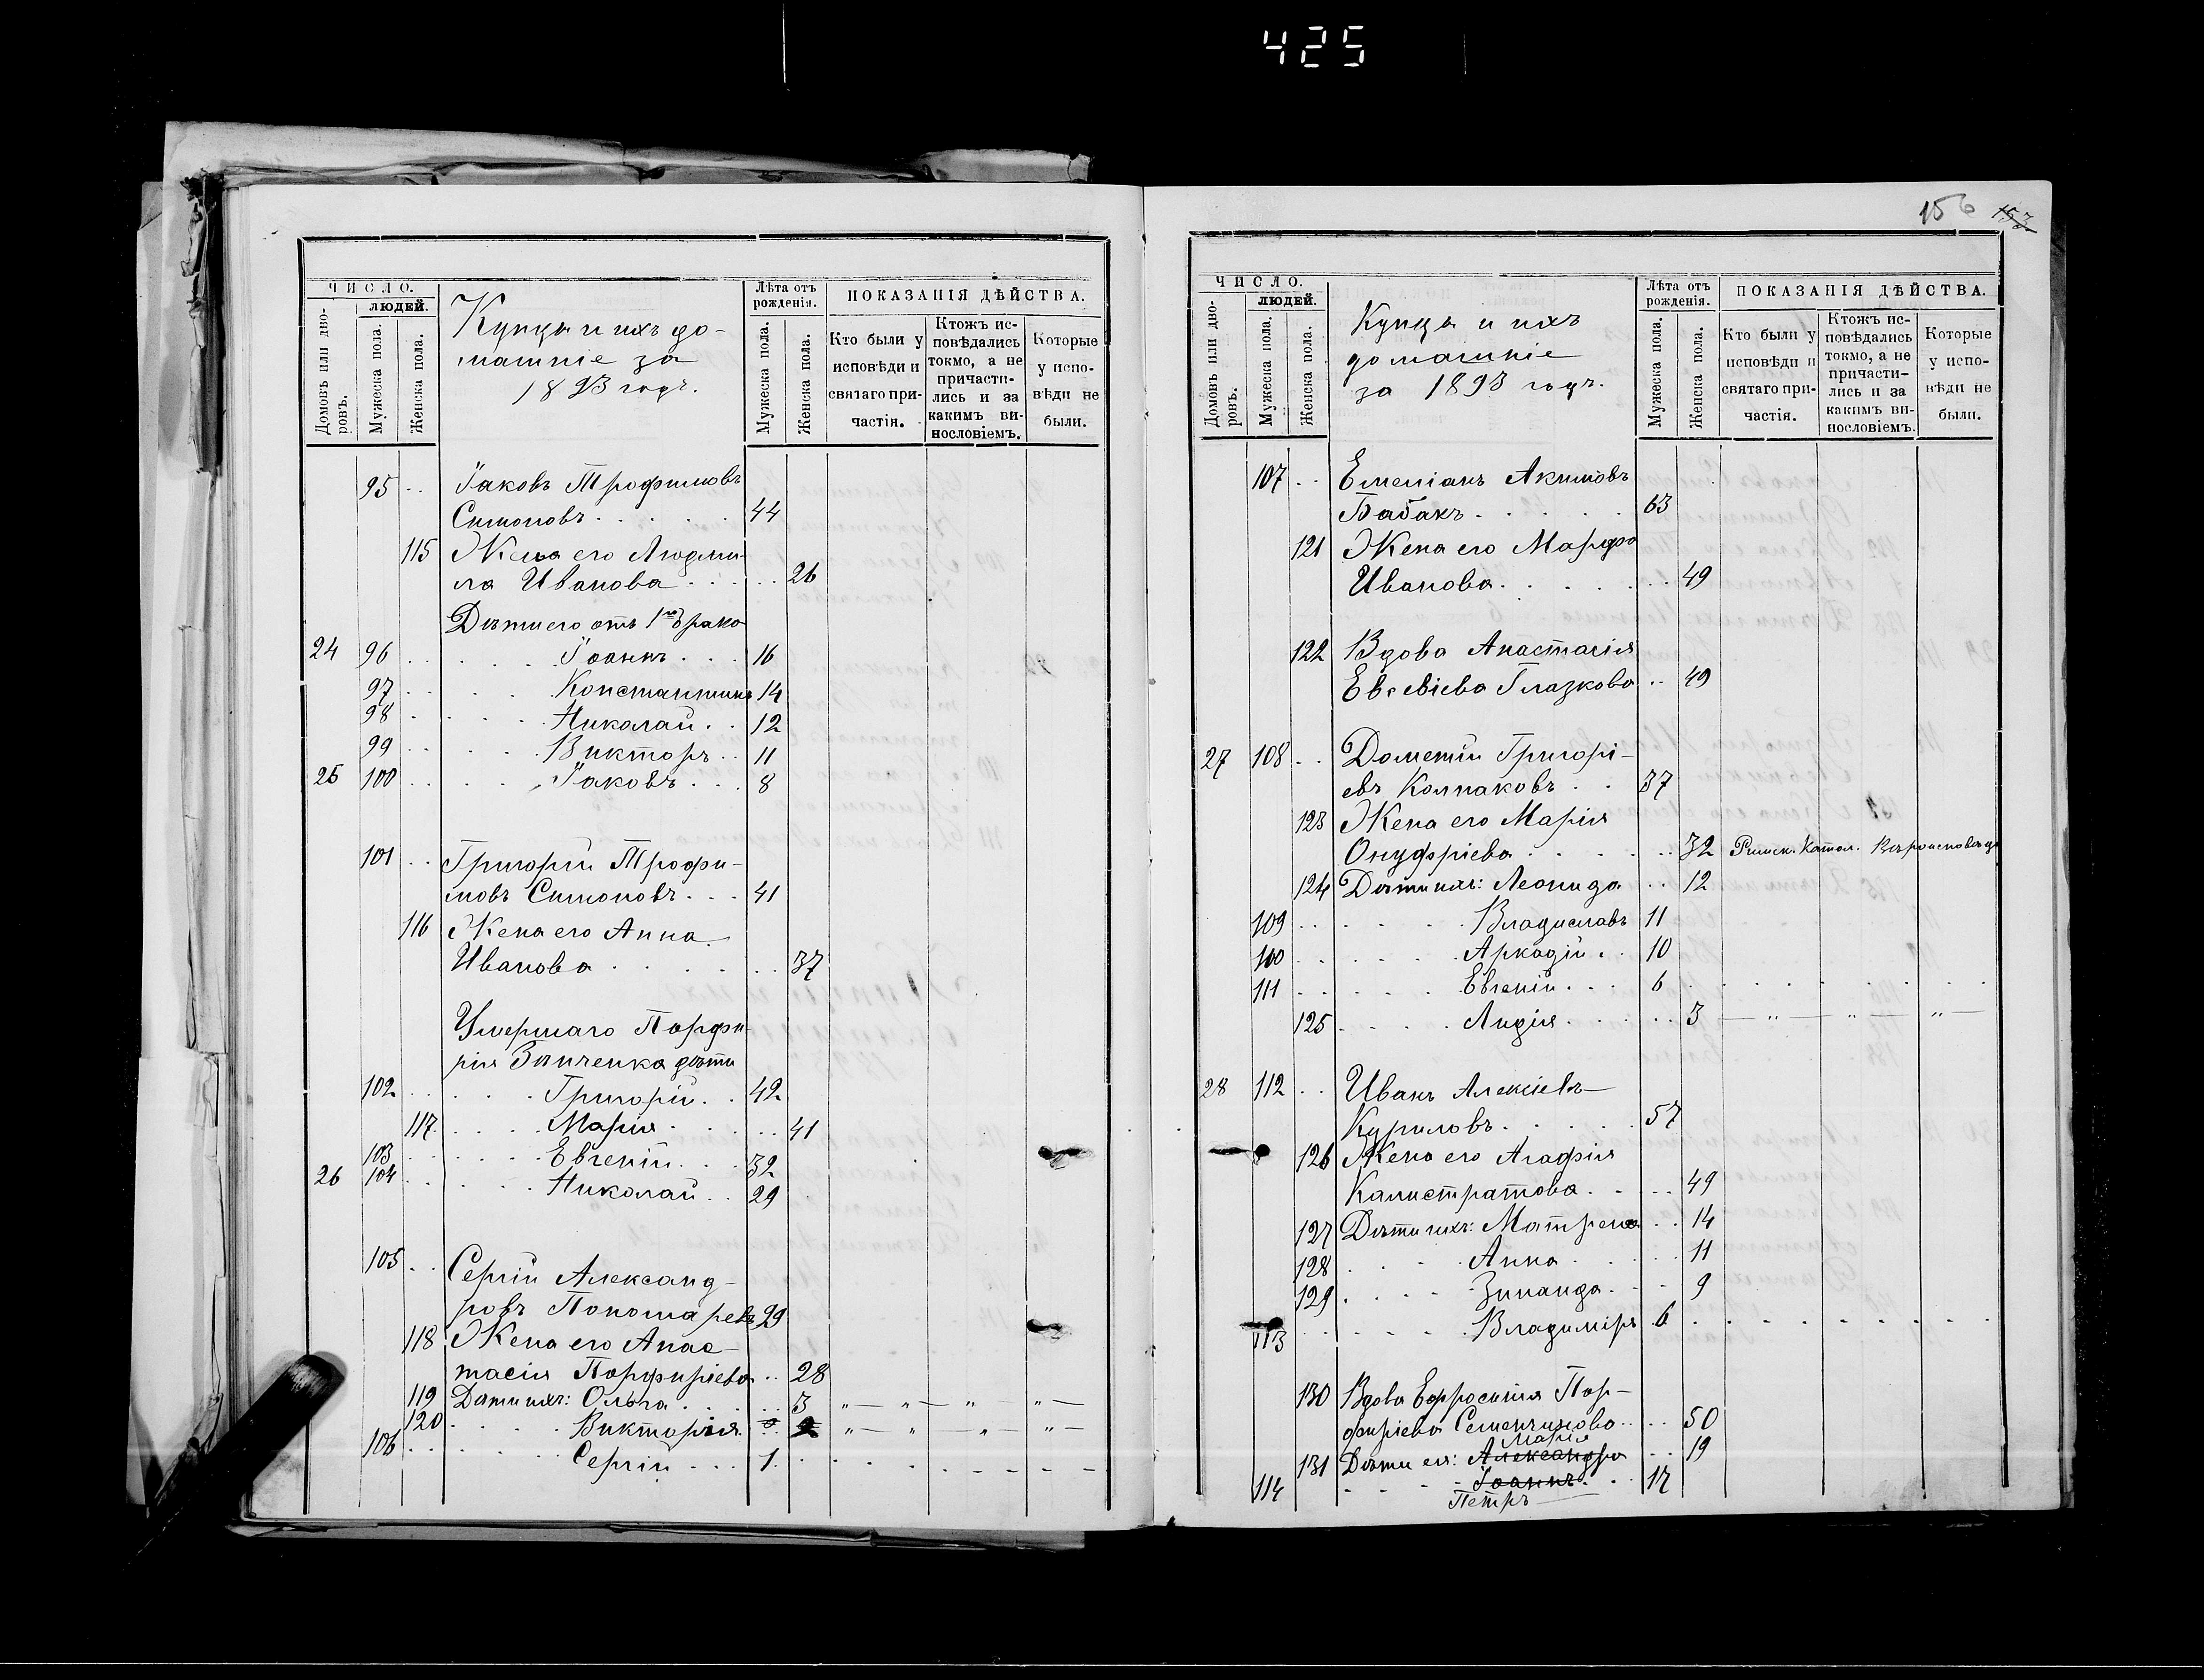 425
ЧИСЛО.
Домовъ или дво-
ровъ.
ЛЮДЕЙ.
Мужеска пола.
Женска пола.
Купцы и ихъ до-
машніе за
1893 годъ.
Лѣта отъ
рожденія.
Мужеска пола.
Женска пола.
ПОКАЗАНІЯ ДѢЙСТВА.
Кто были у
исповѣди и
святаго при-
частія.
Ктожъ ис-
повѣдались
токмо, а не
причасти-
лись и за
какимъ ви-
нословіемъ.
Которые
у испо-
вѣди не
были.
95 .. Іаковъ Трофимовъ
Симоновъ . . . . . 44
115 Жена его Людми-
ла Иванова . . . . . 26
Дѣти его отъ 1го брака
24 96 . . . . . Іоаннъ . . . 16
97 . . . . Константинъ 14
98 . . . . . Николай . . 12
99 . . . . . Викторъ . . 11
25 100 . . . . . Іаковъ . . . 8
101 .. Григорій Трофи-
мовъ Симоновъ . . . 41
116 Жена его Анна
Иванова . . . . . . . 37
Умершаго Порфи-
рія Зинченка дѣти
102 . . . . . Григорій . . 42
117 . . . . Марія . . . . . 41
103 . . . . . . Евгеній . . . 32
26 104 . . . . . . Николай . . 29
105 .. Сергій Александ-
ровъ Пономаревъ 29
118 Жена его Анас-
тасія Порфиріева .. 28
119 Дѣти ихъ: Ольга . . . . . 3 „ — „ — „ „ —
120 . . . . Викторія . . . 2 „ — „ — „ — „ —
106 . . . . . . Сергій . . . 1 . . . . . . . . .
156 153
ЧИСЛО.
Домовъ или дво-
ровъ.
ЛЮДЕЙ.
Мужеска пола.
Женска пола.
Купцы и ихъ
домашніе
за 1893 годъ.
Лѣта отъ
рожденія.
Мужеска пола.
Женска пола.
ПОКАЗАНІЯ ДѢЙСТВА.
Кто были у
исповѣди и
святаго при-
частія.
Ктожъ ис-
повѣдались
токмо, а не
причасти-
лись и за
какимъ ви-
нословіемъ.
Которые
у испо-
вѣди не
были.
107 .. Емеліанъ Акимовъ
Бабакъ . . . . . 63
121 Жена его Марфа
Иванова . . . . . . . 49
122 Вдова Анастасія
Евсевіева Глазкова .. 49
27 108 .. Дометій Григорі-
евъ Колпаковъ . . 37
123 Жена его Марія
Онуфріева . . . . . . 32 Римск. Катол. Вѣроисповѣд
124 Дѣти ихъ: Леонида .. 12
109 . . . . . Владиславъ 11
100 . . . . . . Аркадій . . 10
111 . . . . . Евгеній . . . 6 . . . . . . . .
125 . . . . Лидія . . . . . 3 — „ — „ — „ —
28 112 .. Иванъ Алексіевъ
Куриловъ . . . . . 57
126 Жена его Агафія
Калистратова . . . . 49
127 Дѣти ихъ: Матрена .. 14
128 . . . . Анна . . . . . 11
129 . . . . Зинаида . . . 9
113 . . . . . Владиміръ 6 . . . . . . . . .
130 Вдова Евфросинія Пор-
фиріева Семенчинова . . . . 50
Марія
131 Дѣти ея: Александра .. 19
114 . . . . Іоаннъ . . . 17
Петръ